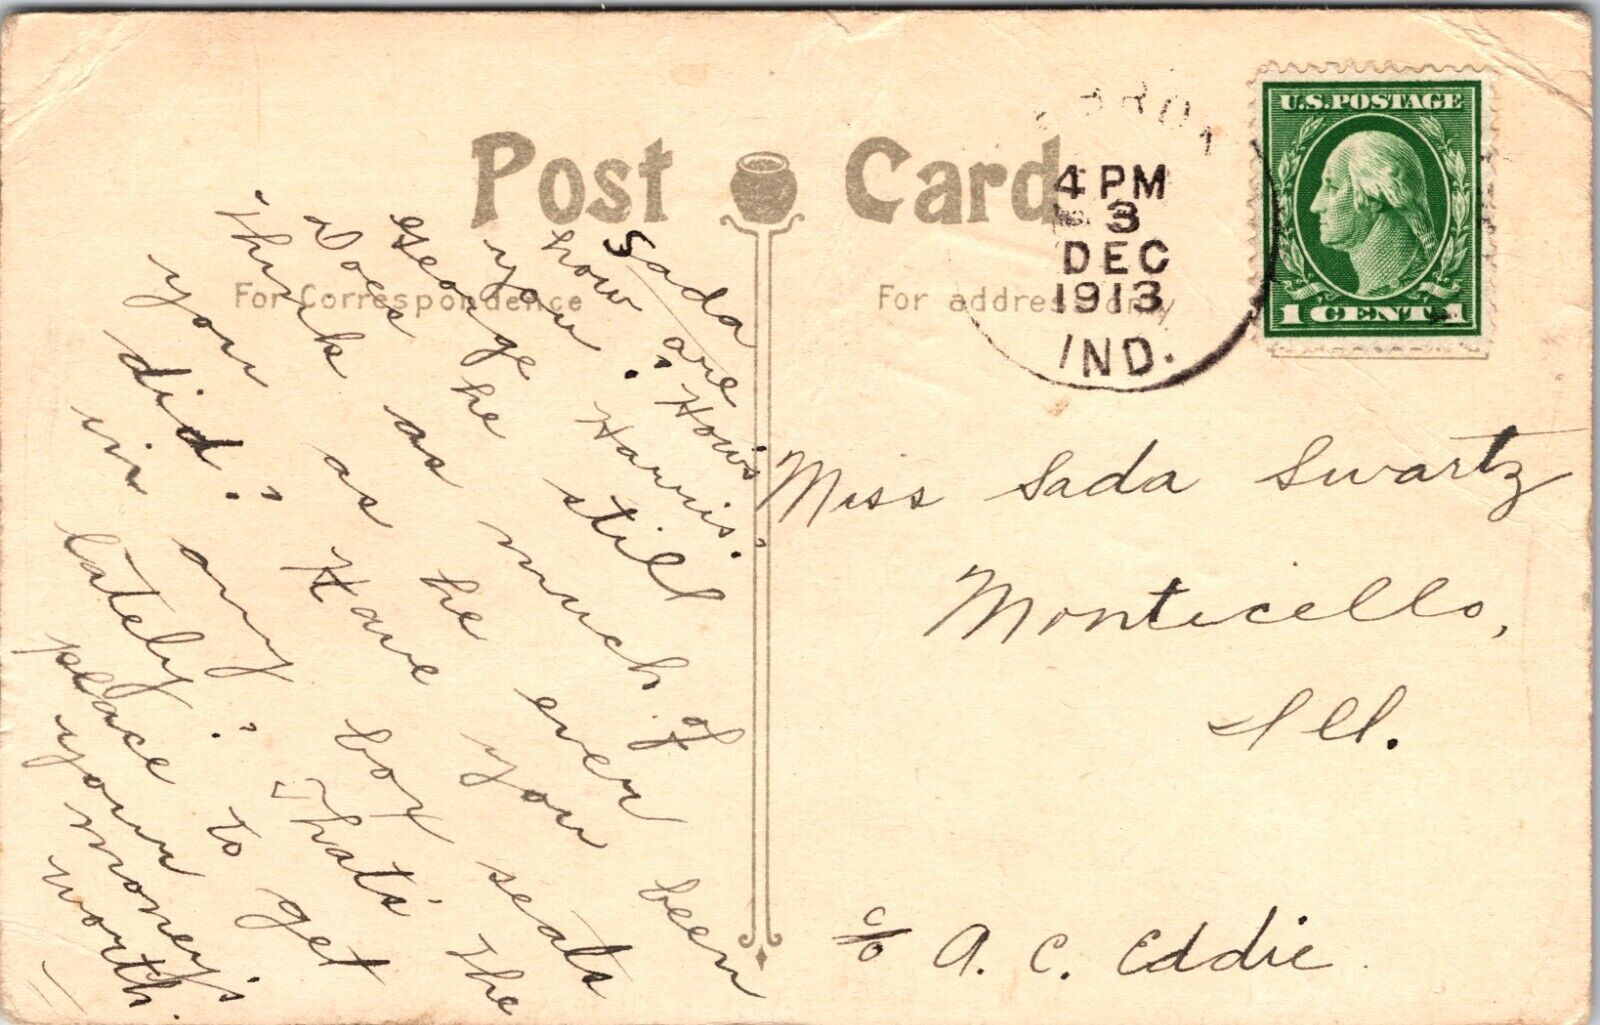 Post Card
For Correspondence
For address only
U.S. POSTAGE
1 CENT 1
4 PM
3
DEC
1913
IND.
Sada
how are
you? How's
George Harris.
Does he still
think as much of
you as he ever
did? Have you been
in any box seats
lately? That's the
place to get
your money's
worth.
Miss Sada Swartz
Monticello,
Ill.
c/o A. C. Eddie